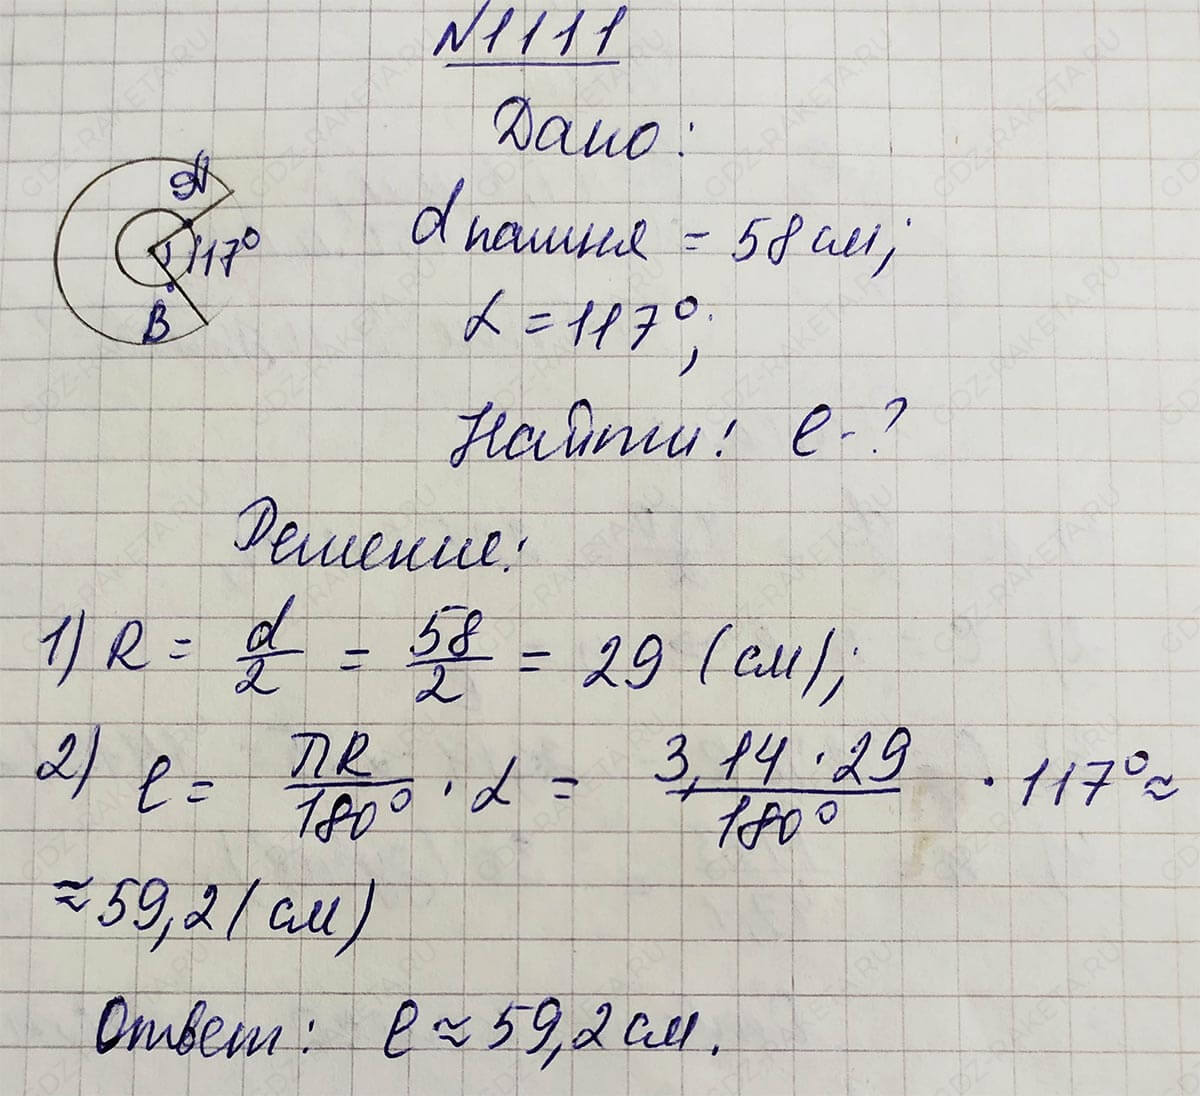 N1111
Дано:
A
117°
B
d пашня = 58 см;
α = 117°;
Найти: l - ?
Решение:
1) R = d/2 = 58/2 = 29 (см);
2) l = πR/180° · α = 3,14 · 29/180° · 117° ≈
≈ 59,2 (см)
Ответ: l ≈ 59,2 см.
GDZ-RAKETA.RU